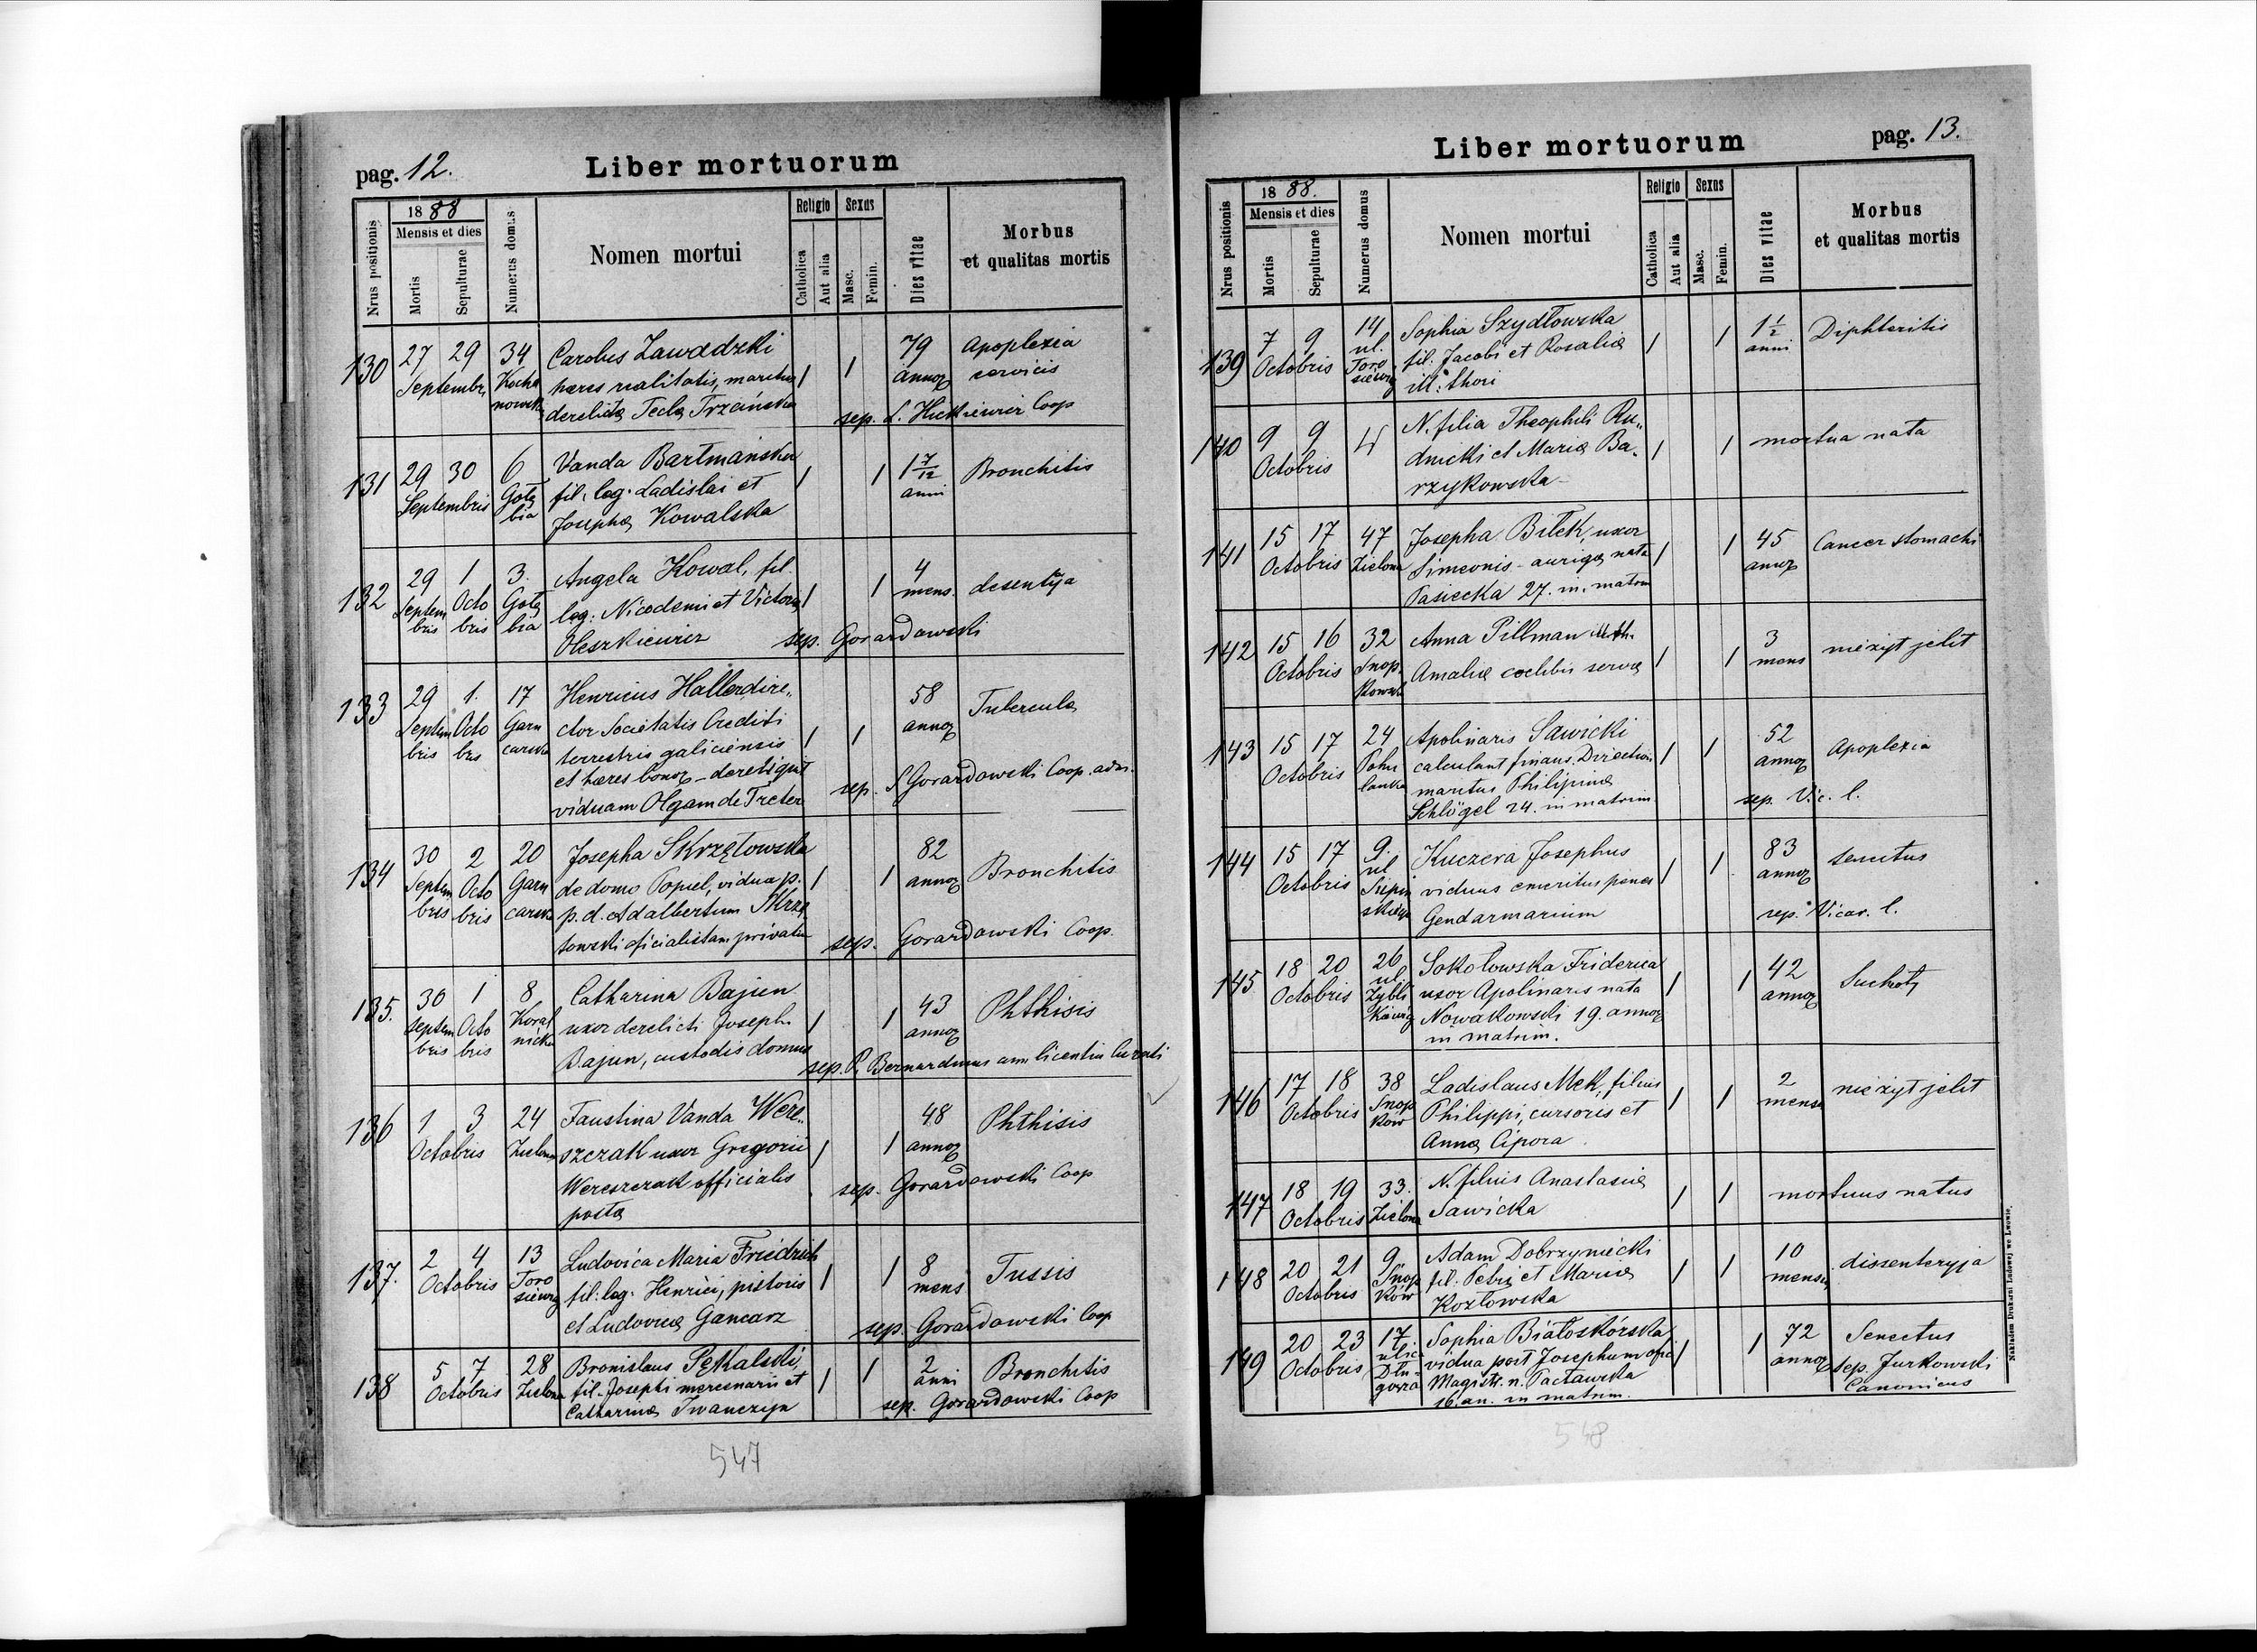 pag. 12.
Liber mortuorum
Nrus positionis
18 88
Mensis et dies
Mortis
Sepulturae
Numerus domus
Nomen mortui
Religio
Catholica
Aut alia
Sexus
Masc.
Femin.
Dies vitae
Morbus
et qualitas mortis
130 27 29 Septembr. 34
Carolus Zawadzki
hæres realitatis, maritus
derelictæ Teclæ Trzcińska
1 1 79 annoꝝ
Apoplexia
cervicis
sep. Coop
131 29 30 Septembris 6 Gołę
bia
Vanda Bartmańska
fil. leg. Ladislai et
Josephæ Kowalska
1 1 1 7/12 anni
Bronchitis
132 29 Septem
bris
1 Octo
bris
3. Gołę
bia
Angela Kowal, fil.
leg: Nicodemi et Victoriæ
Oleszkiewicz
1 1 4 mens.
desentÿja
sep. Gorardowski
133 29 Septem
bris
1. Octo
bris
17 Garn
carska
Henricus Haller dire„
ctor Societatis Crediti
terrestris galiciensis
et hæres bonoꝝ – dereliquit
viduam Olgam de Treter
1 1 58 annoꝝ
Tubercula
sep. S Gorardowski Coop. adm.
134 30 Septem
bris
2 Octo
bris
20 Garn
carska
Josepha Skrzętowska
de domo Popiel, vidua p.
p. d. Adalbertum Skrzę
towski oficialistam privatum
1 1 82 annoꝝ
Bronchitis
sep. Gorardowski Coop.
135. 30 Septem
bris
1 Octo
bris
8 Koral
nicka
Catharina Bajien
uxor derelicti Joseph.
Bajun, custodis domus
1 1 43 annoꝝ
Phthisis
sep. P. Bernardinus cum licentia Curati
136 1 3 Octobris 24 Zielona
Faustina Vanda Were„
szczak uxor Gregorii
Wereszczak officialis
postæ
1 1 48 annoꝝ
Phthisis
sep. Gorardowski Coop
137. 2 4 Octobris 13 Toro
siewicz
Ludovica Maria Friedrich
fil: leg. Henrici, pictoris
et Ludovicæ Gancarz
1 1 8 mens
Tussis
sep. Gorardowski Coop
138 5 7 Octobris 28 Zielona
Bronislaus Pękalski,
fil. Josephi mercenarii et
Catharinæ Iwanczyn
1 1 2 anni
Bronchitis
sep. Gorardowski Coop
547
Liber mortuorum
pag. 13.
Nrus positionis
18 88.
Mensis et dies
Mortis
Sepulturae
Numerus domus
Nomen mortui
Religio
Catholica
Aut alia
Sexus
Masc.
Femin.
Dies vitae
Morbus
et qualitas mortis
139 7 9 Octobris 14 ul.
Toro
siewicz
Sophia Szydłowska
fil. Jacobi et Rosaliæ
ill: thori
1 1 1 1/2 anni
Diphteritis
140 9 9 Octobris
N. filia Theophili Ru„
dnicki et Mariæ Ba„
rzykowska
1 1 mortua nata
141 15 17 Octobris 47 Zielona
Josepha Bilek, uxor
Simeonis – aurigæ nata
Pasiecka 27. in. matrim
1 1 45 annoꝝ
Cancer stomachi
142 15 16 Octobris 32 Snop
Anna Pillman ill. th.
Amaliæ coelibis servæ
1 1 3 mens
nieżyt jelit
143 15 17 Octobris 24 Pohu
lanka
Apolinaris Sawicki
calculant finans. Direction
maritus Philipinæ
Schlögel 24. in matrim
1 1 52 annoꝝ
Apoplexia
sep. Vic. l.
144 15 17 Octobris 9. ul
Kuczera Josephus
viduus emeritus penes
Gendarmarium
1 1 83 annoꝝ
senectus
sep. Vicar. l.
145 18 20 Octobris 26 ul.
Zybli
kiewicz
Sokołowska Friderica
uxor Apolinaris nata
Nowakowski 19. annoꝝ
in matrim.
1 1 42 annoꝝ
Suchoty
146 17 18 Octobris 38 Snop
ków
Ladislaus Mek, filius
Philippi, cursoris et
Annæ Cipora
1 1 2 mens
nieżyt jelit
147 18 19 Octobris 33. Zielona
N. filius Anastasiæ
Sawicka
1 1 mortuus natus
148 20 21 Octobris 9. Snop
ków
Adam Dobrzyniecki
fil. Petri et Mariæ
Kozłowska
1 1 10 mens
dissenteryja
149 20 23 Octobris 17. ulica
Dłu-
gosza
Sophia Białoskórska
vidua post Josephum
Magistr. n. Pacławska
16. an. in matrim.
1 1 72 annoꝝ
Senectus
sep. Jurkowski
Canonicus
Nakładem Drukarni Ludowej we Lwowie.
548